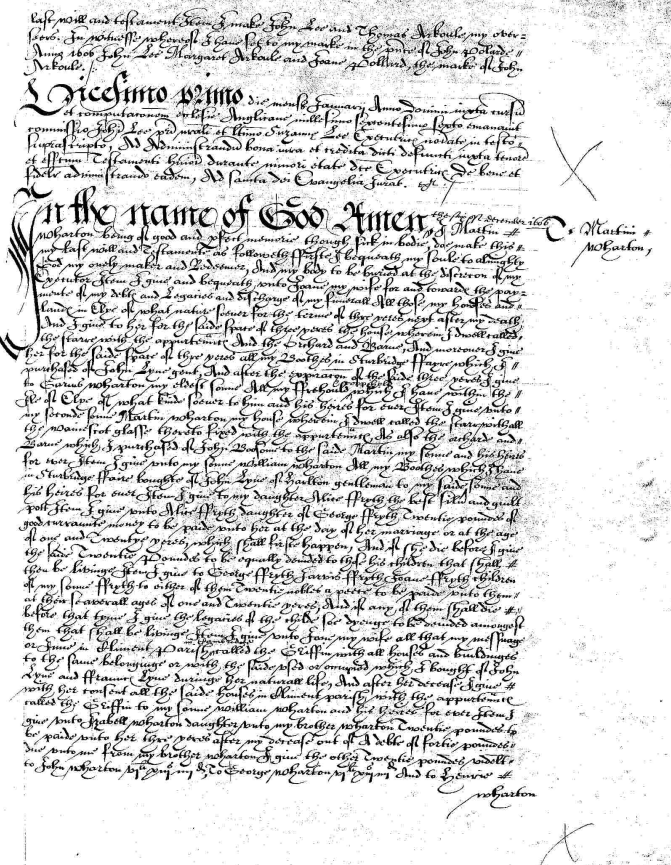 last will and testament Item I make John Lee and Thomas Arkoule my over-
seers. In witnesse whereof I have set to my marke in the pnce of John Pollard
Anno 1606 John Lee Margaret Arkoule and Joane Pollard, the marke of John
Arkoule
Vicesimo primo die mensis Januarij Anno domini iuxta cursu
et computaconem ecclesie Anglicane millesimo sexcentesimo sexto emanauit
commissio Johi Lee Suzanne Lee Executricis noiate in testo
suprascripto, Ad Administrandu bona iura et credita dicti defuncti iuxta tenore
et effectum Testamenti huiusmodi durante minori etate dce Executricis De bene et
fidelr administrando eadem, Ad sancta dei Evangelia Jurat.
In the name of God Amen the of december 1606 I Martin
Wharton being of good and pfect memorie though sick in bodie, doe make this
my last will and Testamente as followeth ffirste I bequeath my soule to almighty
god my onely maker and Redeemer, And my body to be buried at the discrecon of my
Executor Item I give and bequeath unto Joane my wife for and towards the pay-
mente of my debts and Legacies and discharge of my funerall All those my howses and
lands in Elye of what nature soever for the terme of three yeres next after my death
And I give to her for the saide space of three yeres the house wherein I dwell called,
the starre with the appurtenncs And the Orchard and Barne, And moreover I give
her for the saide space of three yeres all my Boothes in Sturbridge ffayre which I
purchased of John Lyne gent, And after the expiracon of the saide three yeres I give
to Wharton my eldest sonne All my ffreehould which I have within the
Ile of Elye of what kind soever to him and his heires for ever Item I give unto
my seconde sonne Martin Wharton my house wherein I dwell called the starr wth all
the wainscot glasse thereto fixed with the appurtenncs As also the orchard and
Barne which I purchased of John to the saide Martin my sonne and his heirs
for ever Item I give unto my sonne William Wharton All my Boothes which I have
in Sturbridge ffaire boughte of John Lyne of Harlton gentleman to my saide sonne and
his heires for ever Item I give to my daughter Alice ffryth the best silver and guilt
pott Item I give unto Alice ffryth daughter of George ffryth Twentie poundes of
good currante money to be paide unto her at the day of her marriage or at the age
of one and Twentye yeres, which shall firste happen, And if she die before I give
the saide Twentie Poundes to be equally devided to those his children that shall
then be livinge Item I give to George ffryth Jarvis ffryth Joane ffryth children
of my sonne ffryth to either of them Twentie nobles a peece to be paide unto them
at their severall ages of one and Twentie yeres, And if any of them shall die
before that tyme I give the legacies of the childe soe dyenge to be devided amongest
them that shall be livinge Item I give unto Jone my wife all that my messuage
or Inne in Parish called the Griffin with all houses and buildinges
to the same belonginge or with the saide used or occupied which I bought of John
Lyne and ffraunces Lyne duringe her naturall life, And after her decease I give
with her consent all the saide houses in parish with the appurtenncs
called the Griffin to my sonne William Wharton and his heires for ever Item I
give unto Isabell Wharton daughter unto my brother Wharton Twentie poundes to
be paide unto her three yeres after my decease out of A debte of fortie poundes
due unto me from my brother Wharton I give the other Twentie poundes
to John Wharton vili xiijs iiijd To George Wharton vili xiijs iiijd And to Henrie
Wharton
T. Martin
Wharton,